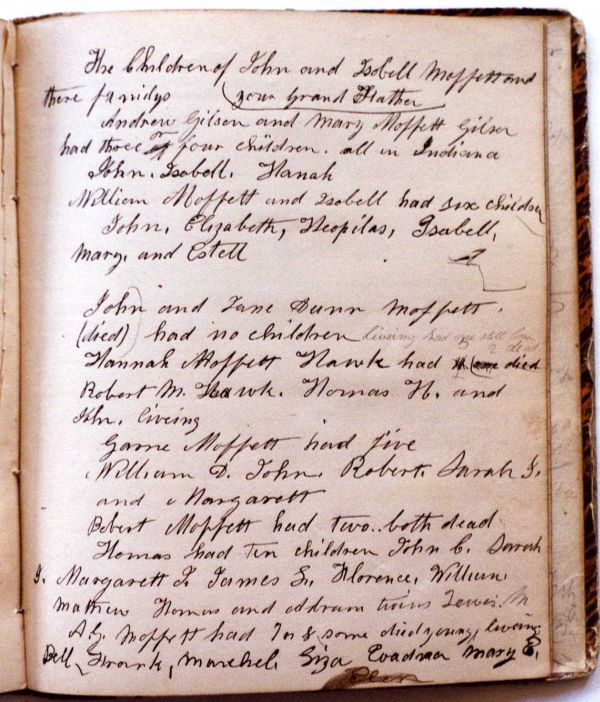 The Children of John and Isobell Moffett and
there familys (your Grand Father
Andrew Gilson and Mary Moffett Gilson
had three or four children. all in Indiana
John. Isobell. Hanah
William Moffett and Isobell had six children
John, Elizabeth, Neopilas, Isabell,
Mary, and Estell
John and Jane Dunn Moffett.
(died) had no children liveing had one still born
Hannah Moffett Hawk had 2 died
Robert M. Hawk. Thomas H. and
Jhn. liveing
Moffett had five
William D. John. Robert. Sarah J.
and Margarett
Robert Moffett had two.. both dead
Thomas had Ten children John C. Sarah
J. Margarett J. James S. Florence, William.
Mathew Thomas and twins Lewis. M
A. G. Moffett had 7 or 8 some died young, liveing
Bell, Frank, Mary E.